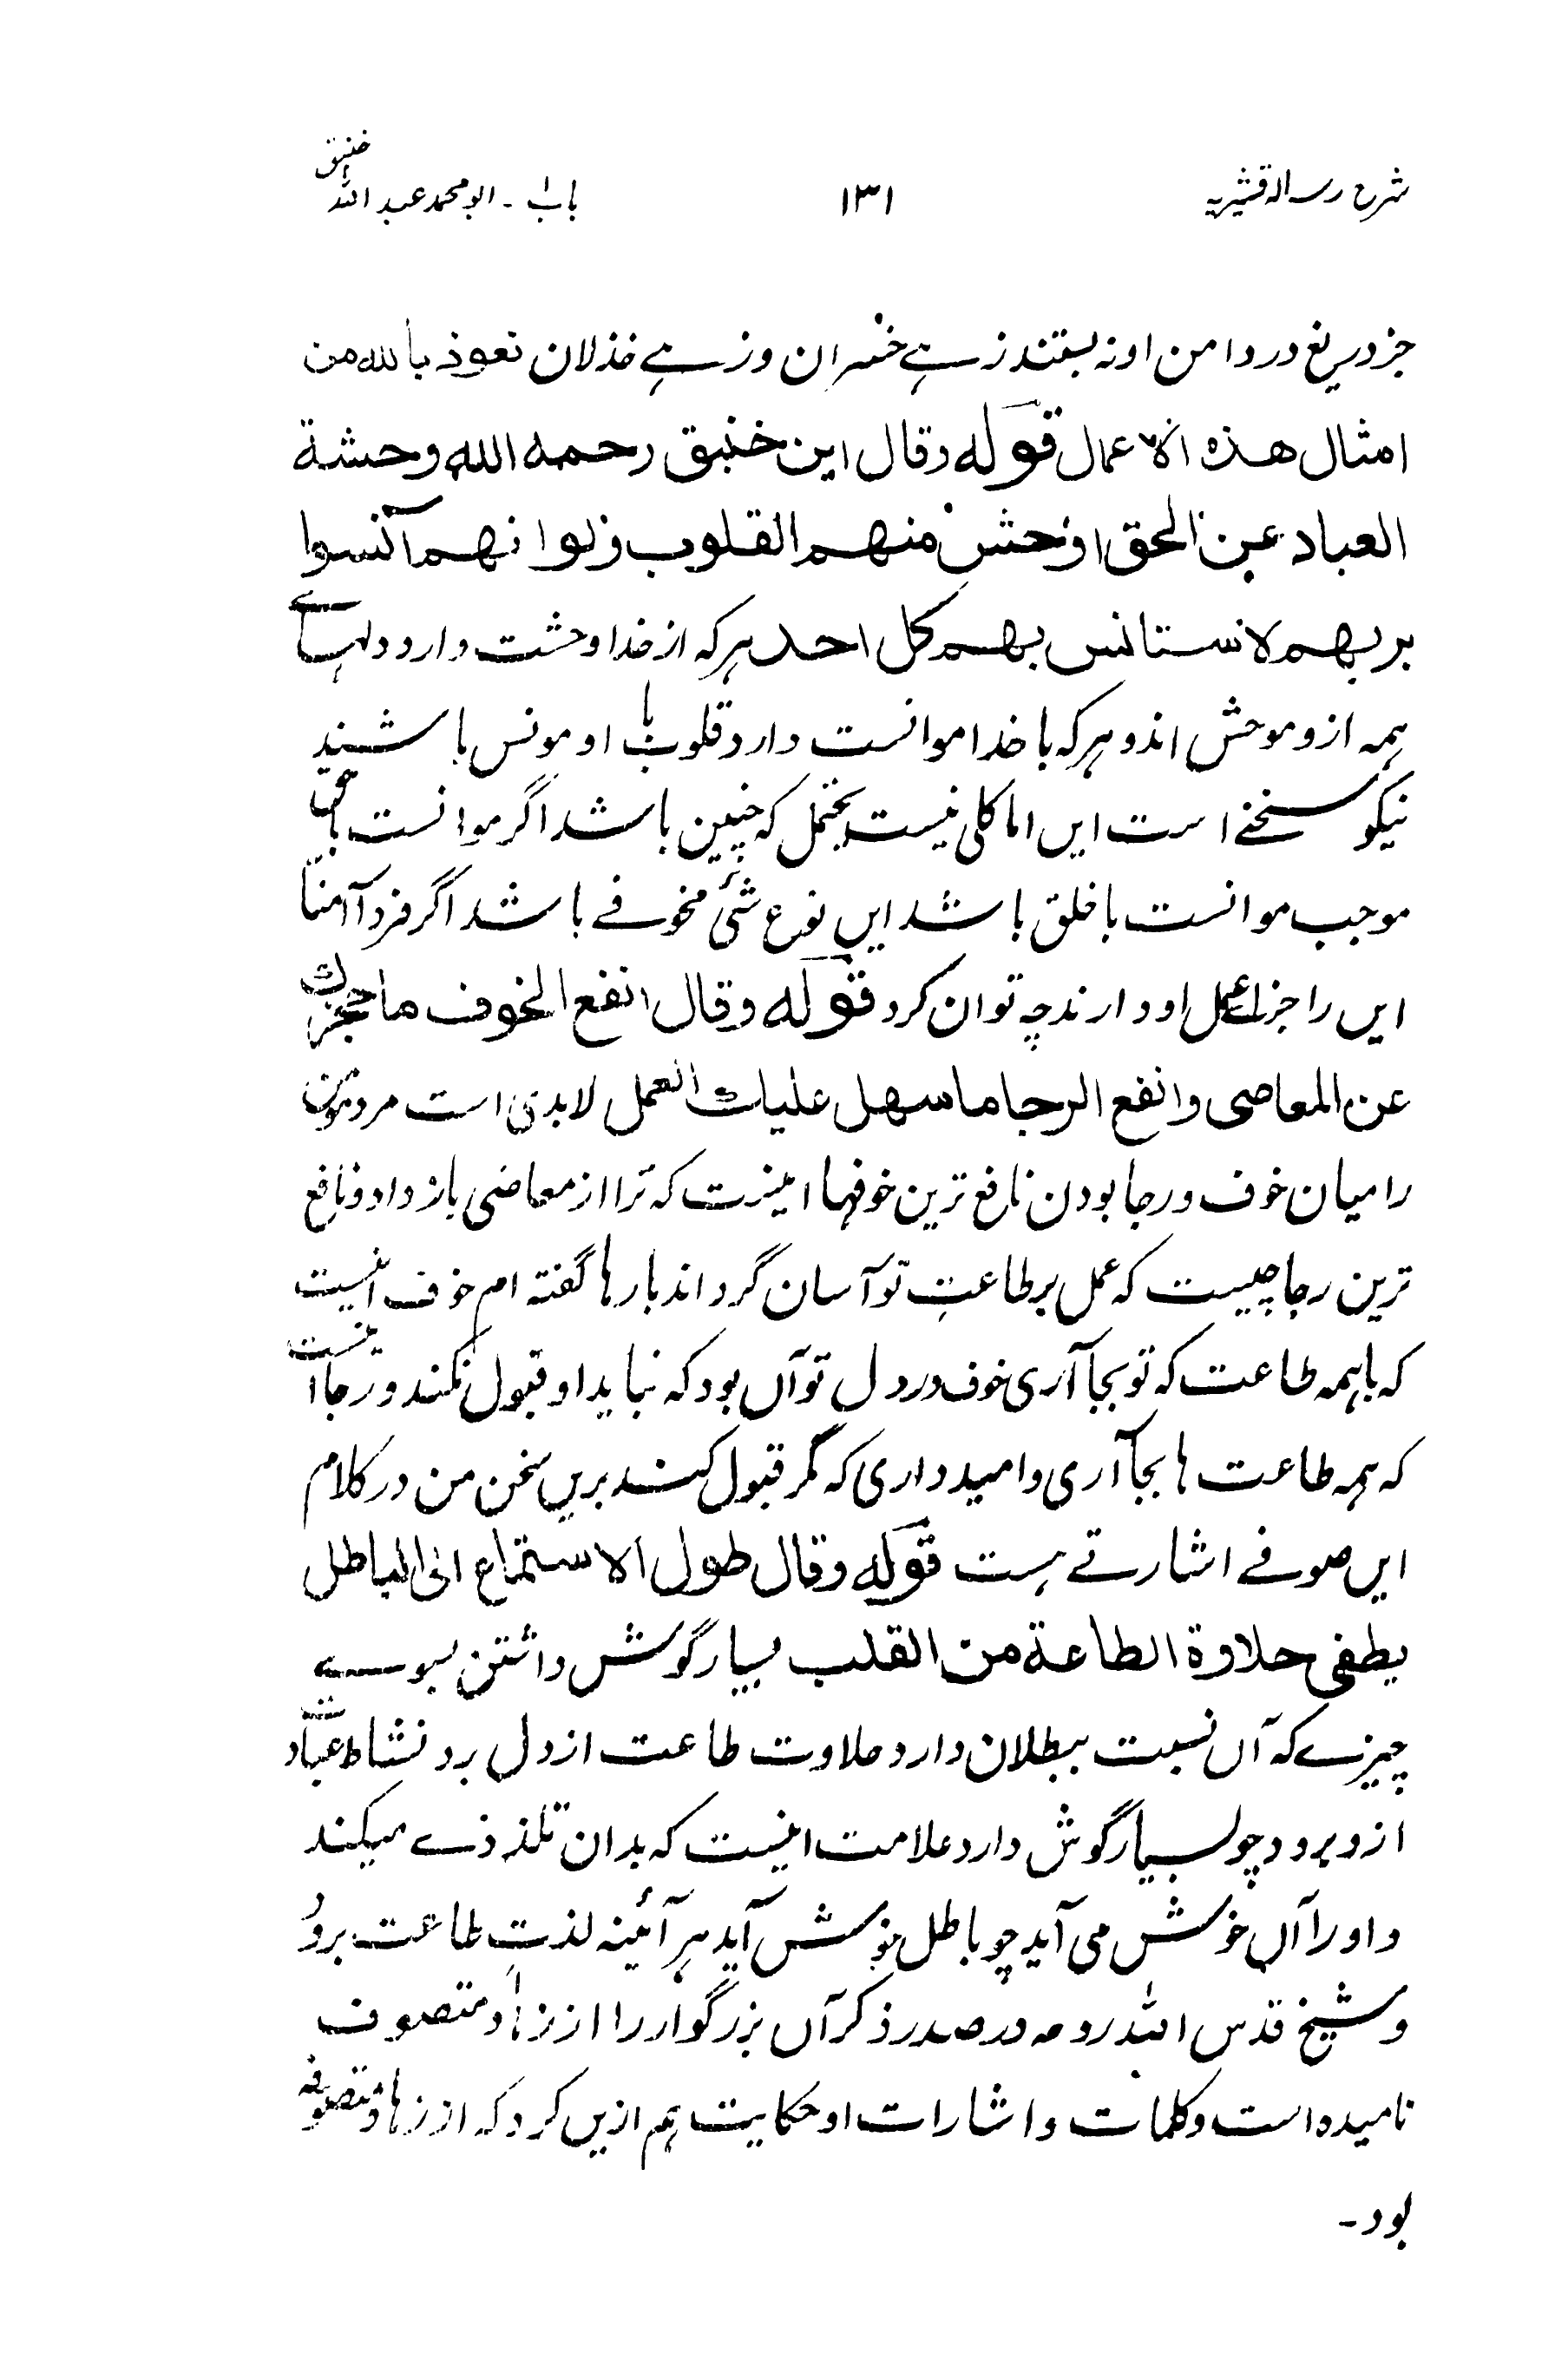 شرح رسالہ قشیریہ ۱۳۱ باب ۱ ۔ ابو محمد عبد اللہ خنبق
جز دریغ در دامن او نہ بستند زہے خسران وزہے خذلان نعوذ باللہ من
امثال ھذہ الاعمال قولہ وقال ابن خنبق رحمہ اللہ وحشة
العباد عن الحق اوحش منھم القلوب ولوانھم آنسوا
بربھم لاستانس بھم کل احد ہر کہ از خدا وحشت دارد دلہاے
ہمہ ازو موحش اند و ہر کہ با خدا موانست دارد قلوب با او مونس باشند
نیکو سخنے است ایں اما کلی نیست یحتمل کہ چنیں باشد اگر موانست باحق
موجب موانست باخلق باشد ایں نوع شئ مخوفے باشد اگر فردا آمنا
ایں را جزاے عمل او دارند چہ تواں کرد قولہ وقال انفع الخوف ماحجزک
عن المعاصی وانفع الرجا ماسھل علیک العمل لابدی است مر مومن
را میان خوف و رجا بودن نافع ترین خوفہا اینست کہ ترا از معاصی باز دارد و نافع
ترین رجا چیست کہ عمل بر طاعتِ تو آسان گرداند بارہا گفتہ ام خوف اینست
کہ باہمہ طاعت کہ تو بجا آری خوف در دل تو آں بود کہ نباید او قبول نکند و رجا اینست
کہ ہمہ طاعت ہا بجا آری و امید داری کہ مگر قبول کند بریں سخن من در کلام
ایں صوفے اشارتے ہست قولہ وقال طول الاستماع الی الباطل
یطفی حلاوة الطاعة من القلب بسیار گوش داشتن بسوے
چیزے کہ آں نسبت ببطلان دارد حلاوت طاعت از دل برد نشاط عبادت
ازو برود چو بسیار گوش دارد علامت اینست کہ بدان تلذذے میکند
و اورا آں خوش می آید چو باطل خوش آید ہر آئینہ لذتِ طاعت برود
و شیخ قدس اللہ روحہ در صدر ذکر آں بزرگوار را از زہاد متصوف
نامیدہ است و کلمات و اشارات او حکایت ہم ازیں کرد کہ از زہاد متصوفہ
بود۔